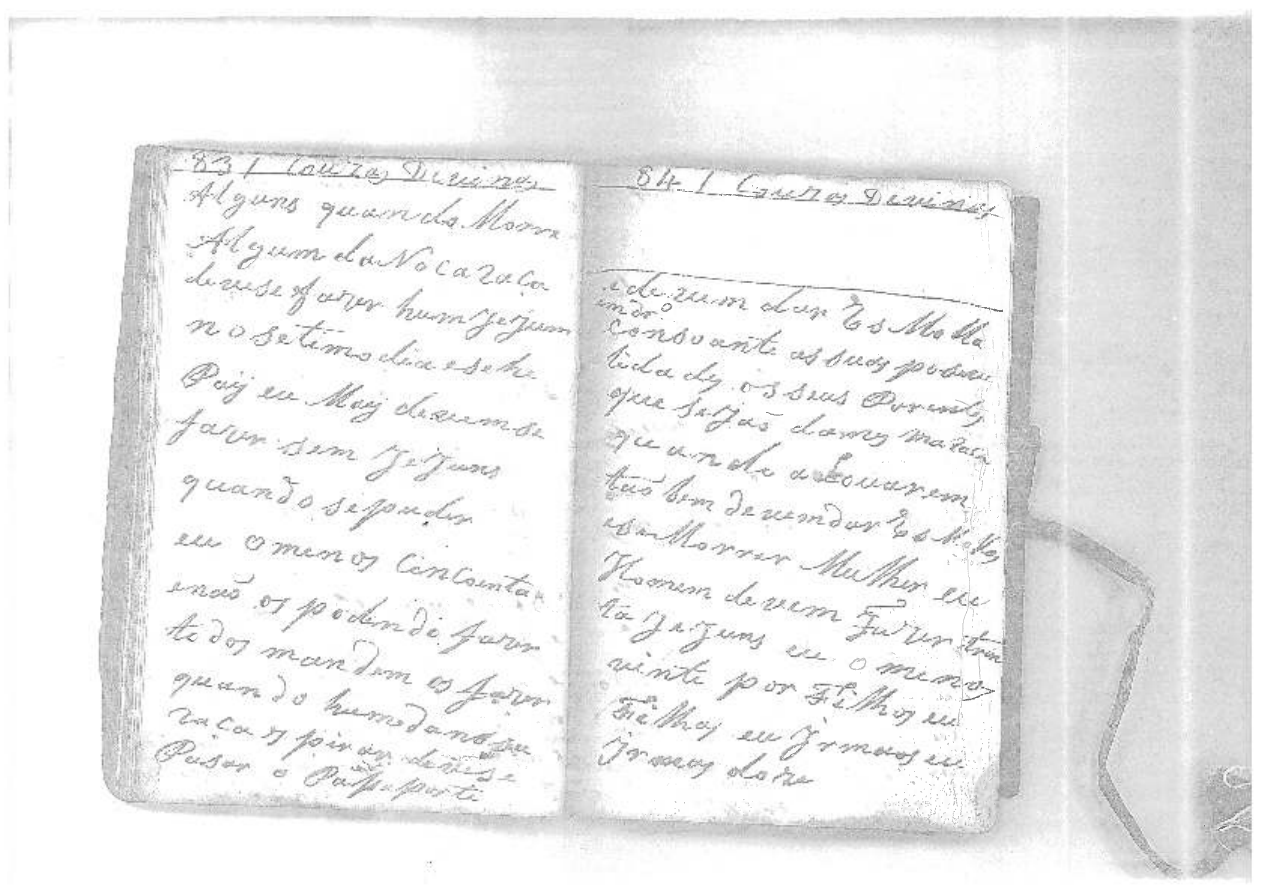 83 / Couzas Devinas
Alguns quando Morre
Algum da Noca Raca
devese fazer hum JeJum
no setimo dia e se he
Paÿ eu Maÿ devem se
fazer sem JeJuns
quando se puder
eu o menos Cincoenta
e não os podendo fazer
todos mandem os fazer
quando hum da nosa
raca espirar devese
Pasar o Pasaporte
84 / Couzas Devinas
e devem dar EsMolla
em dr.o
Consoante as suas poseve
lidades os seus Parentes
que seJão da mes ma raca
quando a Louvarem
tão bem devem dar EsMollas
e se Morrer Mulher eu
Homem devem Fazer trin
ta JeJuns eu o menos
vinte por Filhos eu
Filhas eu Irmaos eu
Irmas doze